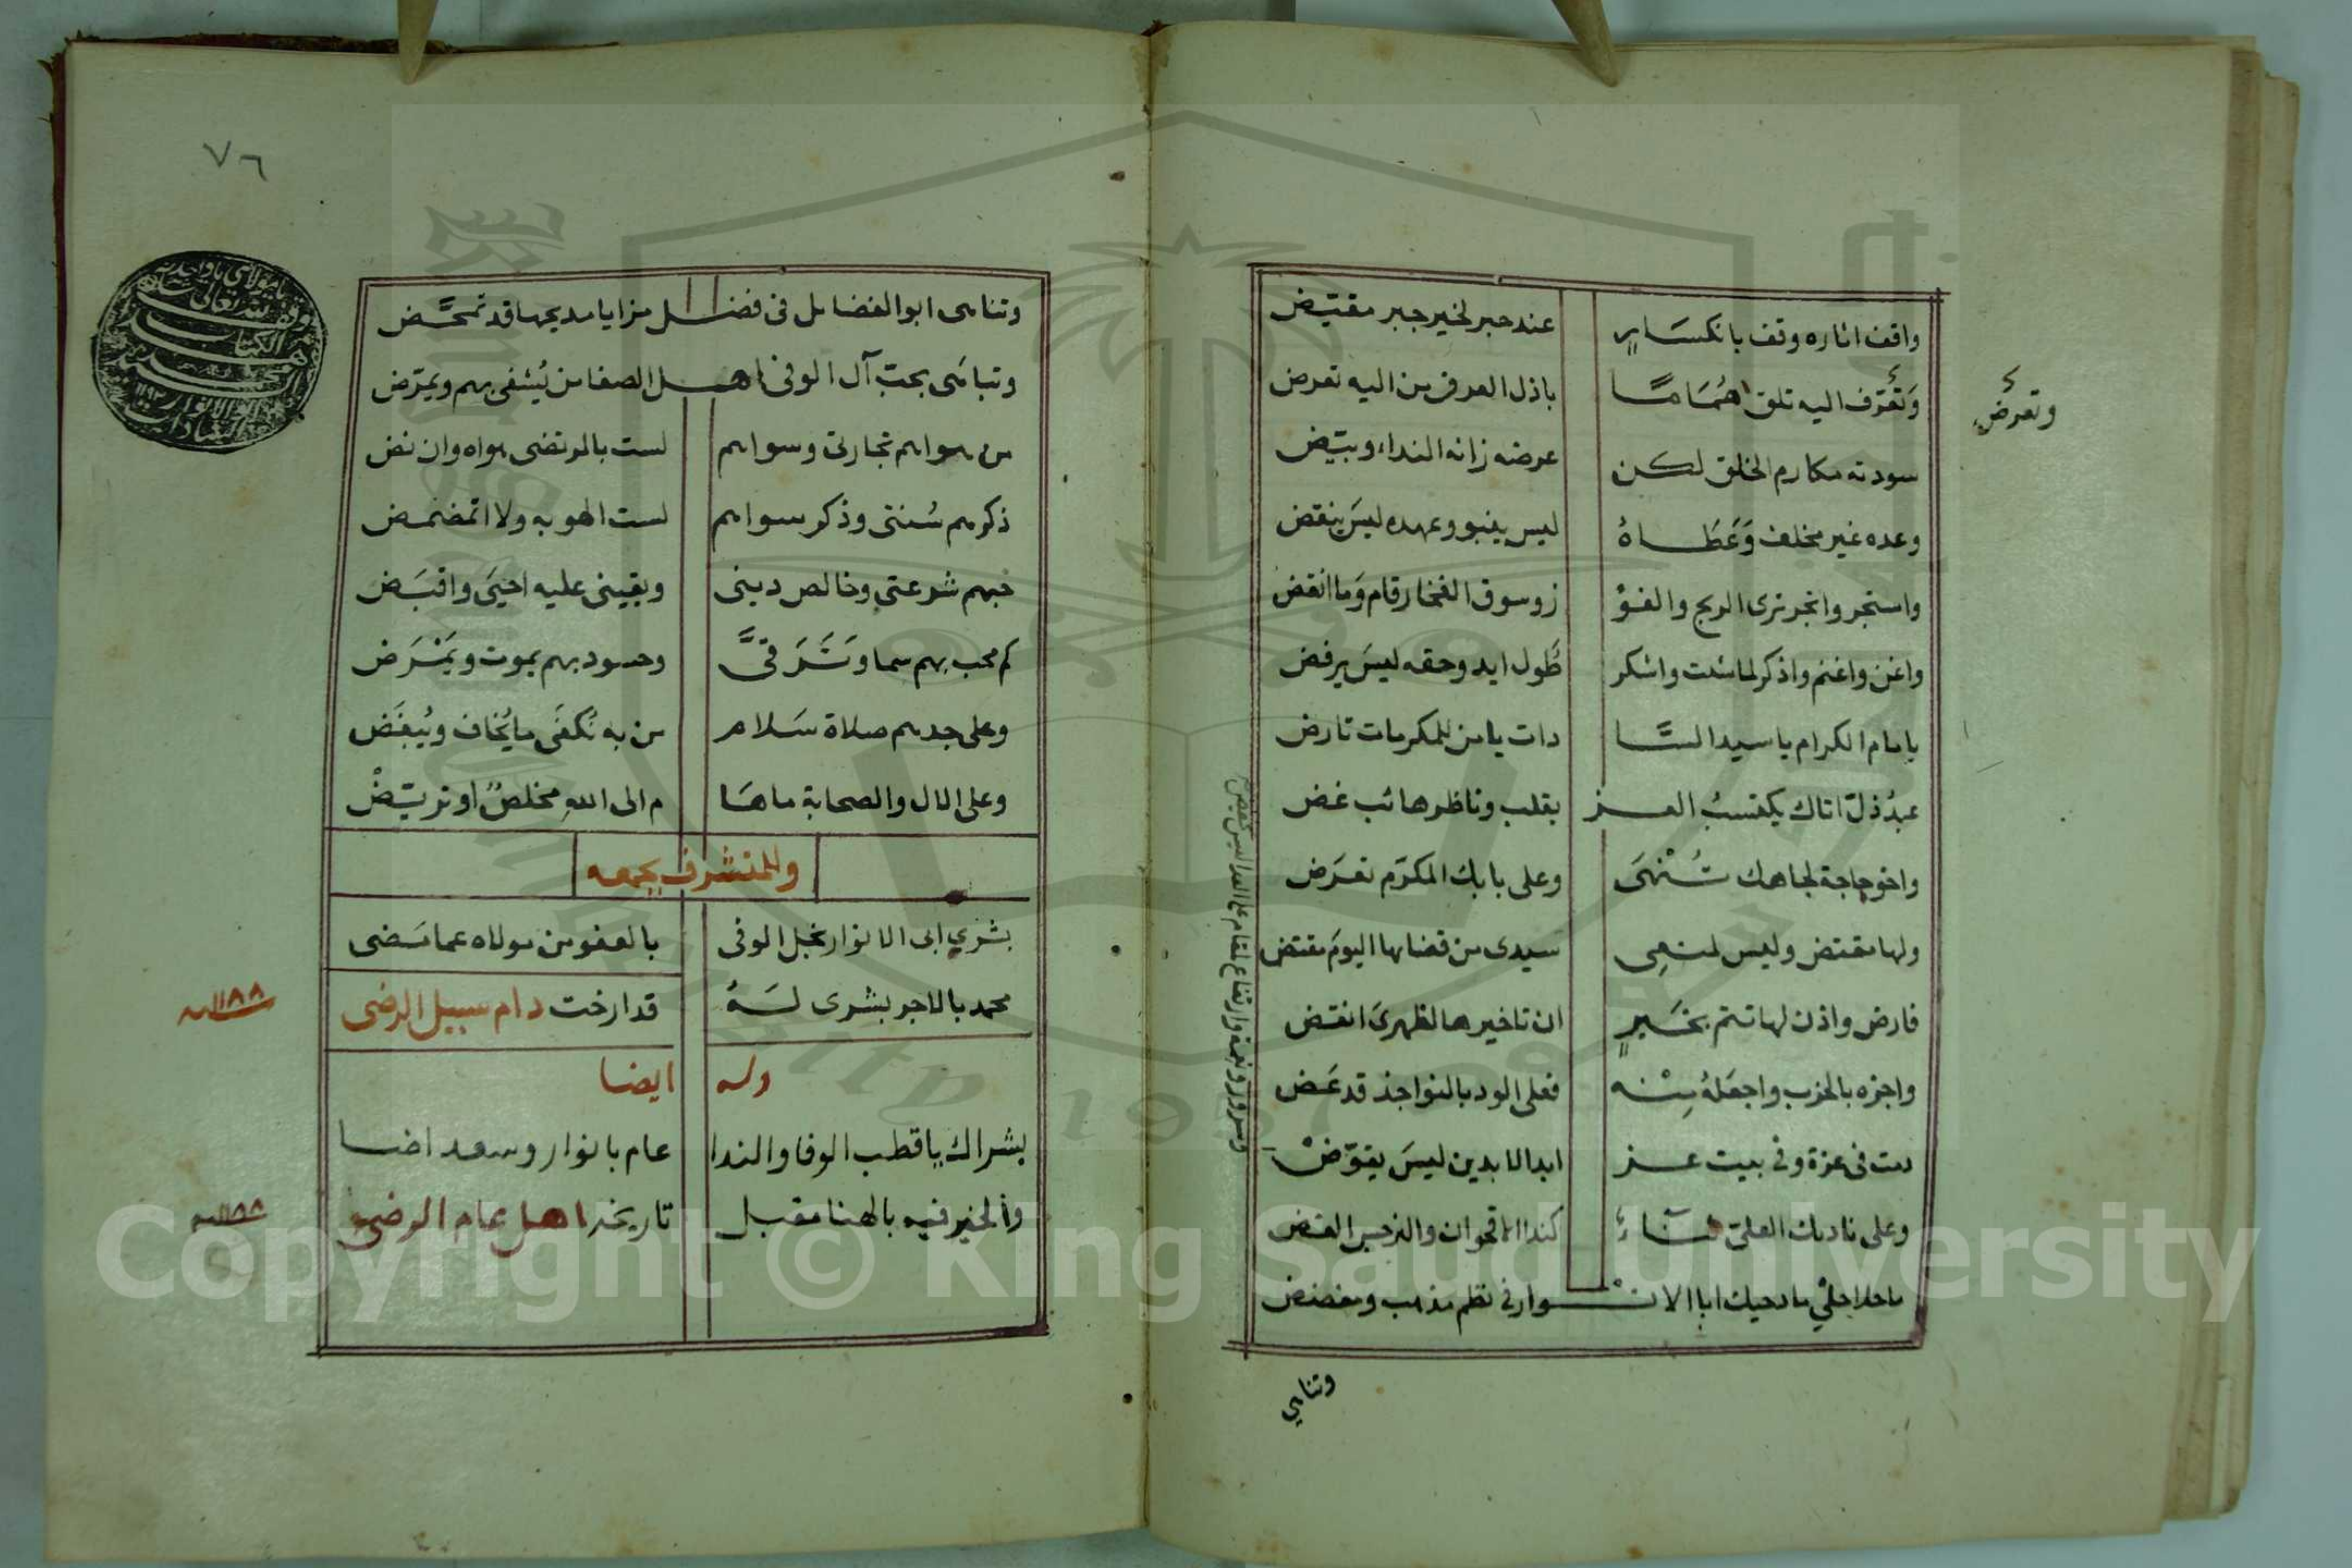 واقف اثاره وقف بانكسار عند حبر لخير جبر مقيّض
وتعرّف اليه تلق هماما باذل العرف من اليه تعرض
وتعرض
سودته مكارم الخلق لكن عرضه زانه النداء وبيّض
وعده غير مخلف وعطاه ليس ينبو وعهده ليس ينقض
واستجر واتجر ترى الربح والفو ز وسوق الفخار قام وما انفض
واغن واغنم واذكر لما شئت واشكر طول ايد وحقه ليس يرفض
يا امام الكرام يا سيد السا دات يا من للمكرمات تارض
عبد ذل اتاك يكتسب العز بقلب وناظر هائب غض
واخو حاجة لجاهك تنهى وعلى بابك المكرّم تعرض
ولها مقتض وليس لمنهى سيدى من قضايها اليوم مقتض
فارض واذن لها تتم بخير ان تاخيرها لظهرى انقض
واجزه بالحزب واجعله منه فعلى الود بالنواجذ قد عض
دمت فى عزة وفى بيت عز ابد الابدين ليس يقوّض
وعلى ناديك العلىّ ثناء كندا الاقحوان والنرجس الغض
ما حلا حلى مادحيك ابا الانوار فى نظم مذهب ومفضض
وتناهى
٧٦
وتناهى ابو الفضايل فى فضل مزايا مديحها قد تمحّض
وتباهى بحبّ آل الوفى اهل الصفا من يُشفى بهم ويمرّض
من هواهم تجارتى وسواهم لست بالمرتضى هواه وان نض
ذكرهم سنتى وذكر سواهم لست الهو به ولا اتمضمض
حبهم شرعتى وخالص دينى ويقينى عليه احيى واقبض
كم محب بهم سما وترقىّ وحسود بهم يموت ويمرض
وعلى جدهم صلاة سلام من به نكفى ما يخاف ويبغض
وعلى الال والصحابة ما ها م الى الله مخلص او تريّض
وللمتشرف بجمعه
بشرى ابى الانوار نجل الوفى بالعفو من مولاه عما مضى
محمد بالاجر بشرى له قد ارخت دام سبيل الرضى
١١٨٨ سنه
وله ايضا
بشراك يا قطب الوفا والندا عام بانوار وسعد اضا
والخير فيه بالهنا مقبل تاريخه اهل عام الرضى
١١٨٨ سنه
Copyright © King Saud University
1957